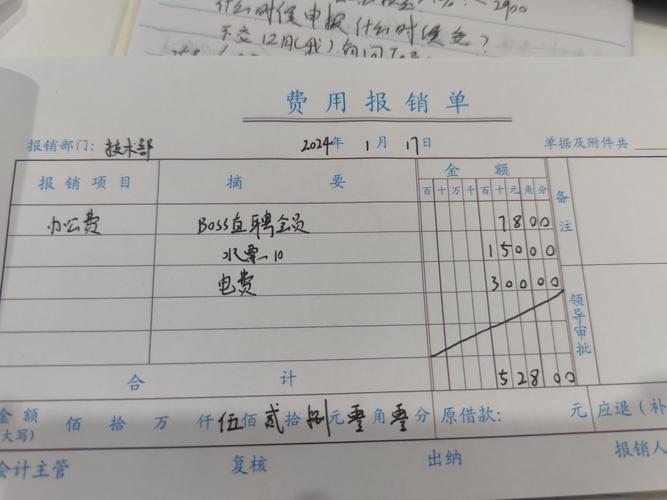 什么时候申报 什么时候交?
费用报销单
报销部门: 技术部 2024年 1月 17日 单据及附件共
报销项目 摘要 金额 备注
百十万千百十元角分
办公费 Boss直聘会员 7800
水票—10 15000
电费 30000
领导审批
合计 52800
金额(大写) 佰 拾 万 仟 伍佰 贰拾 捌元 零角 零分 原借款: 元 应退(补
会计主管 复核 出纳 报销人